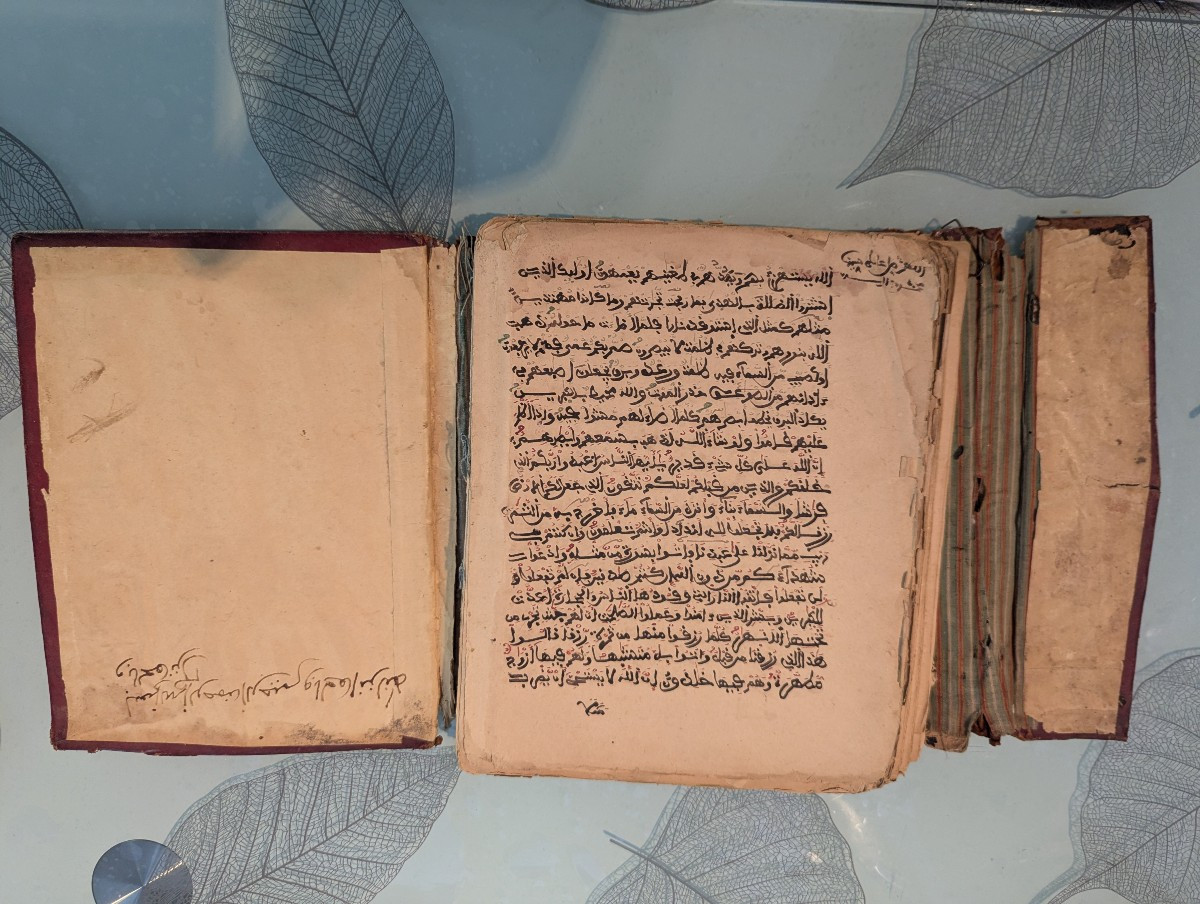 الله يستهزئ بهم ويمدهم في طغينهم يعمهون اوليك الذين
اشتروا الضللة بالهدى فما ربحت تجرتهم وما كانوا مهتدين
مثلهم كمثل الذي استوقد نارا فلما اضاءت ما حوله ذهب
الله بنورهم وتركهم في ظلمت لا يبصرون صم بكم عمي فهم لا يرجعون
او كصيب من السماء فيه ظلمت ورعد وبرق يجعلون اصبعهم في
ءاذانهم من الصوعق حذر الموت والله محيط بالكفرين
يكاد البرق يخطف ابصرهم كلما اضاء لهم مشوا فيه واذا اظلم
عليهم قاموا ولو شاء الله لذهب بسمعهم وابصرهم
ان الله على كل شيء قدير يايها الناس اعبدوا ربكم الذي
خلقكم والذين من قبلكم لعلكم تتقون الذي جعل لكم الارض
فرشا والسماء بناء وانزل من السماء ماء فاخرج به من الثمرت
رزقا لكم فلا تجعلوا لله اندادا وانتم تعلمون وان كنتم في
ريب مما نزلنا على عبدنا فاتوا بسورة من مثله وادعوا
شهداءكم من دون الله ان كنتم صدقين فان لم تفعلوا و
لن تفعلوا فاتقوا النار التي وقودها الناس والحجارة اعدت
للكفرين وبشر الذين ءامنوا وعملوا الصلحت ان لهم جنت تجري من
تحتها الانهر كلما رزقوا منها من ثمرة رزقا قالوا
هذا الذي رزقنا من قبل واتوا به متشبها ولهم فيها ازوج
مطهرة وهم فيها خلدون ان الله لا يستحي ان يضرب
مثلا